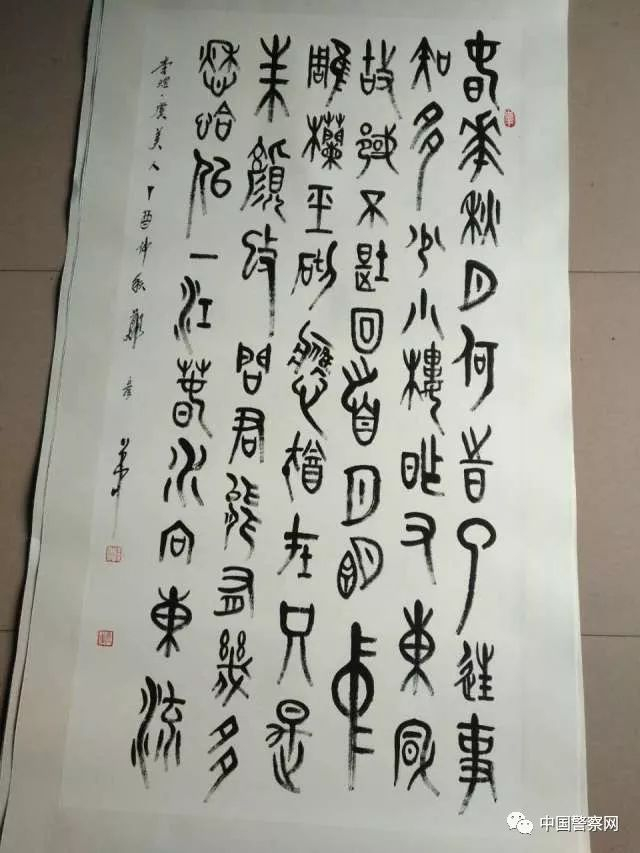 春華秋月何旹了往事
知多少小樓昨又東風
故國不堪回首月明中
雕欄玉砌應猶在只是
朱顏改問君能有幾多
愁恰似一江春水向東流
李煜·虞美人丁酉仲秋
中国警察网